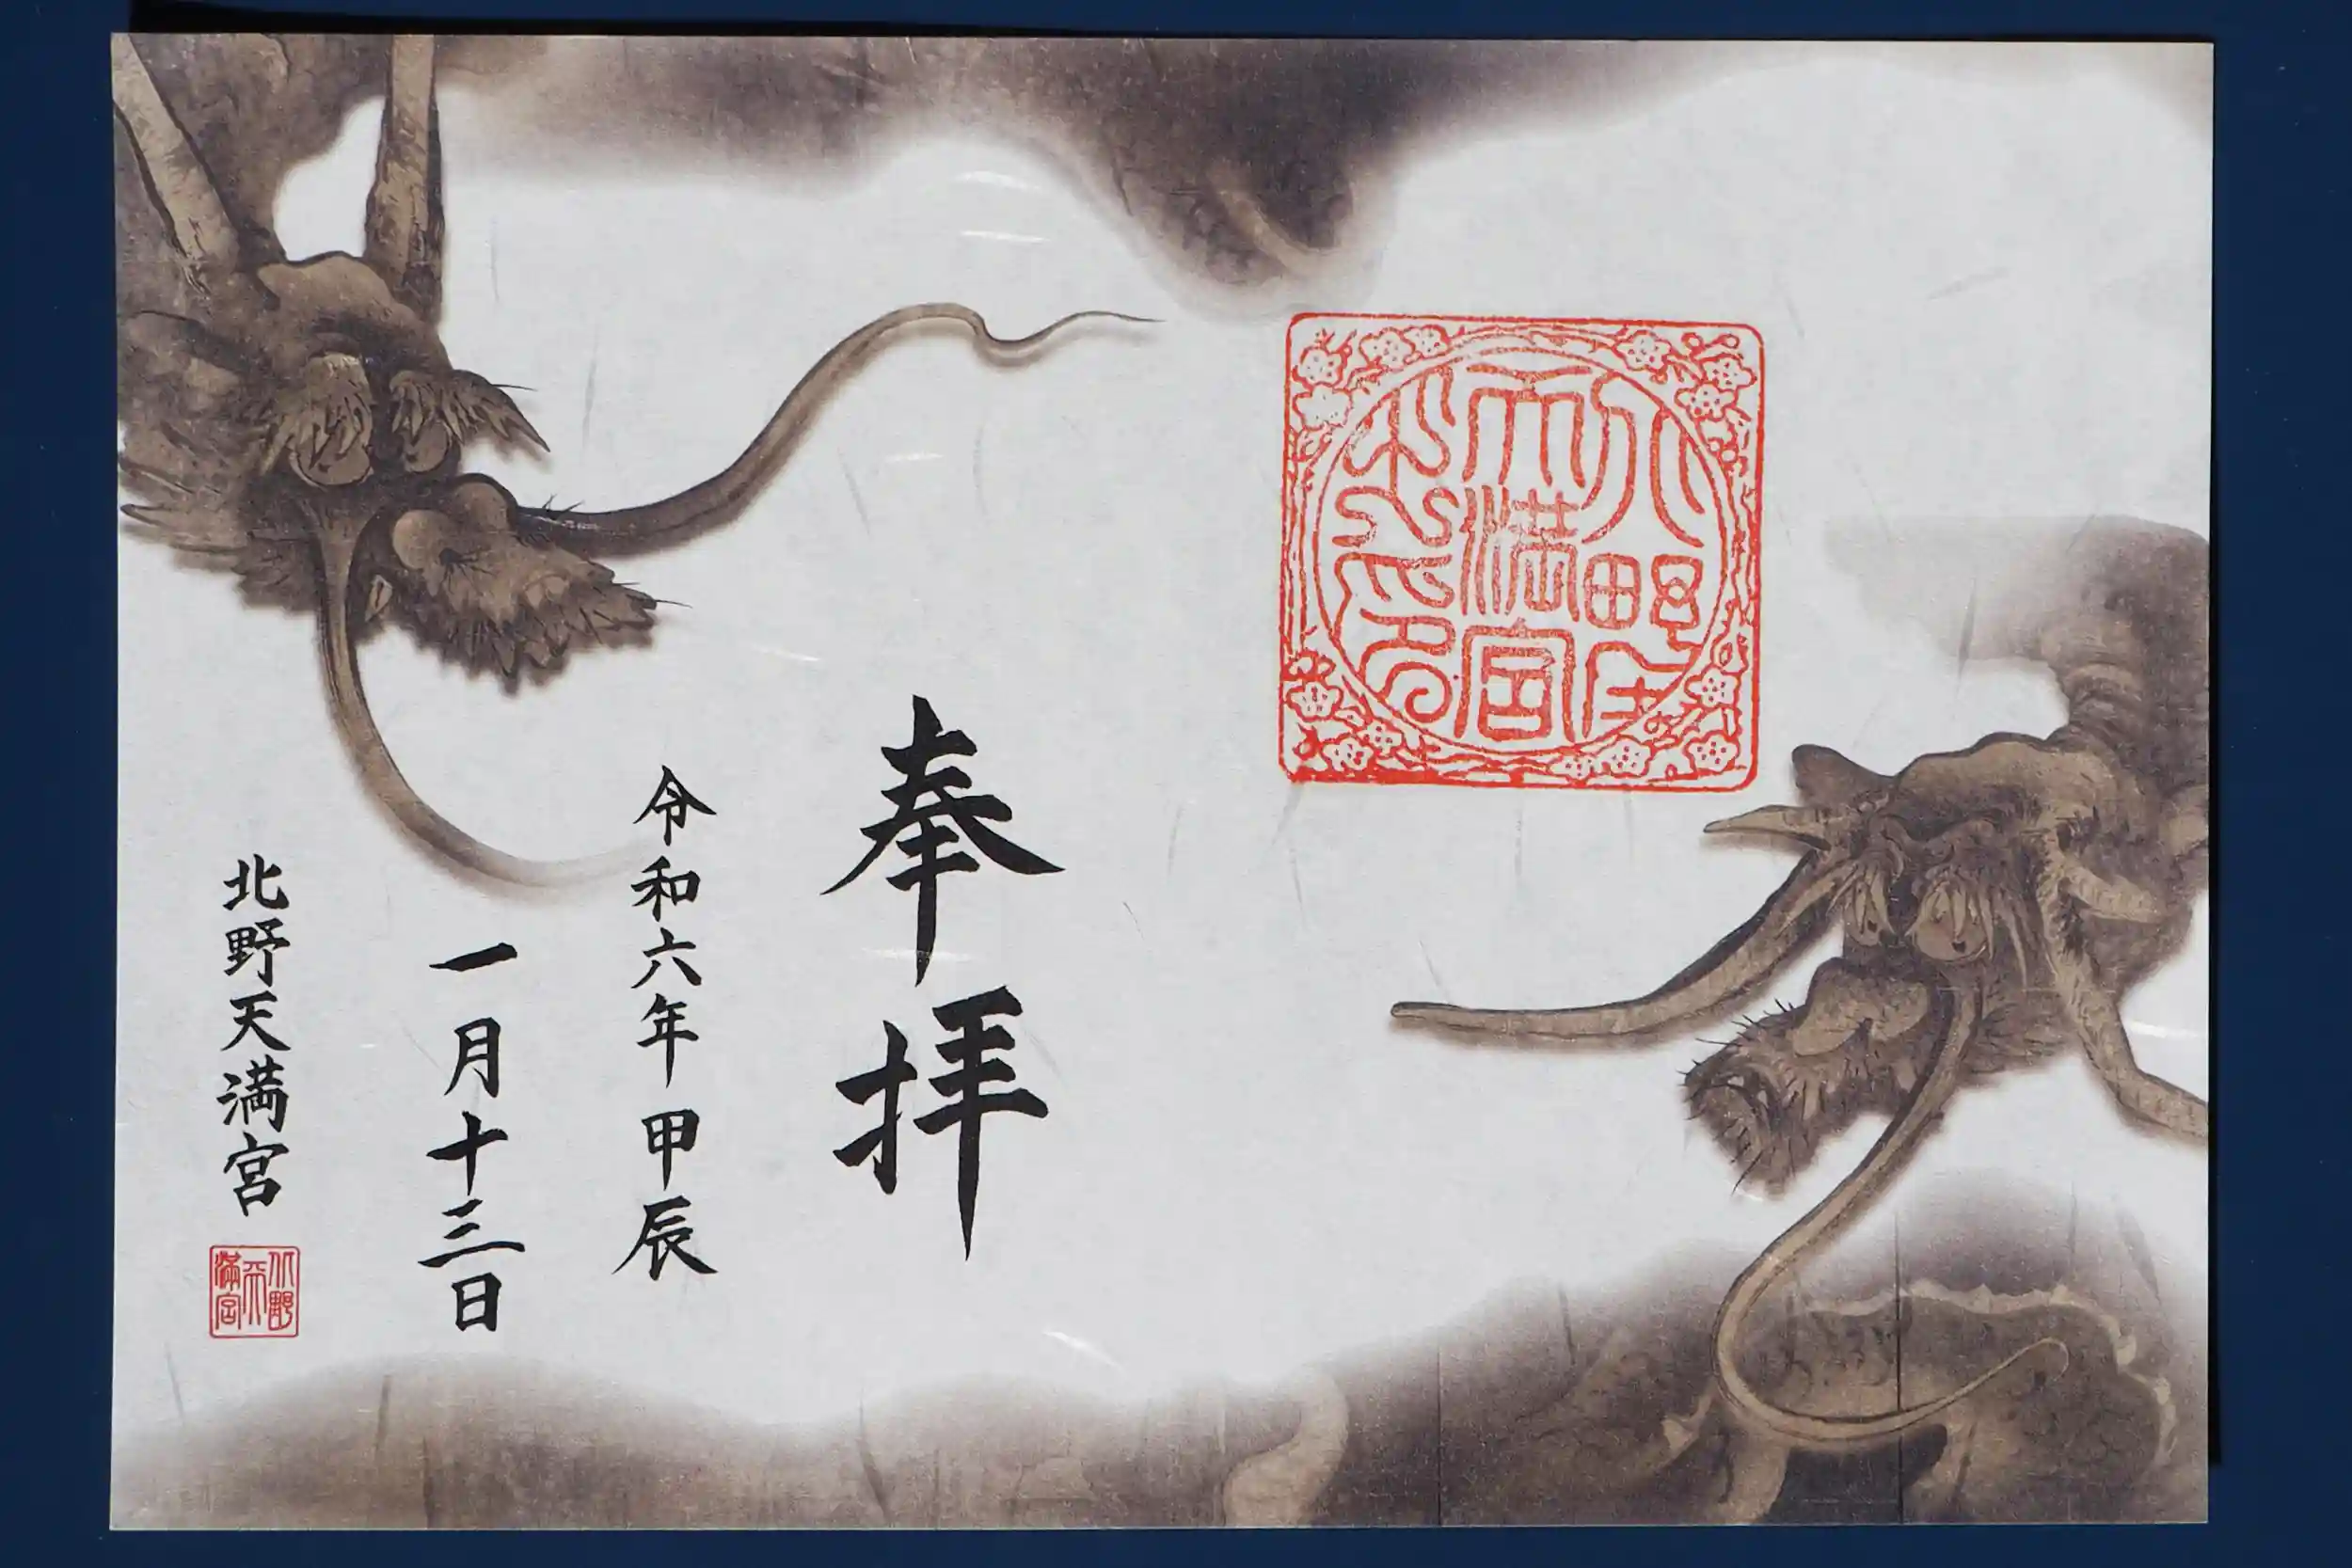 奉拝
令和六年 甲辰
一月十三日
北野天満宮
北野天満宮